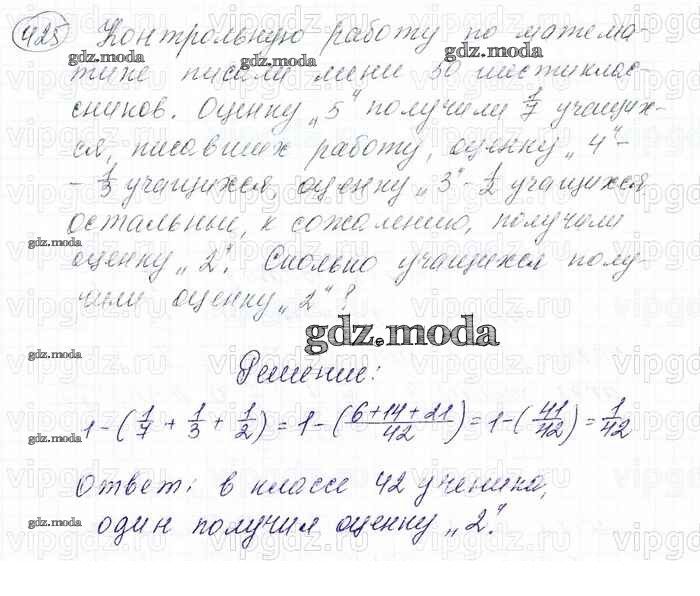 425 Контрольную работу по матема-
тике писали мени 50 шестиклас-
сников. Оценку „5" получили 1/7 учащих-
ся, писавших работу, оценку „4"-
- 1/3 учащихся, оценку „3"- 1/2 учащихся
остальные, к сожалению, получили
оценку „2". Сколько учащихся полу-
чили оценку „2"?
gdz.moda
Решение:
1-(1/7 + 1/3 + 1/2) = 1-((6+14+21)/42) = 1-(41/42) = 1/42
Ответ: в классе 42 ученика,
один получил оценку „2".